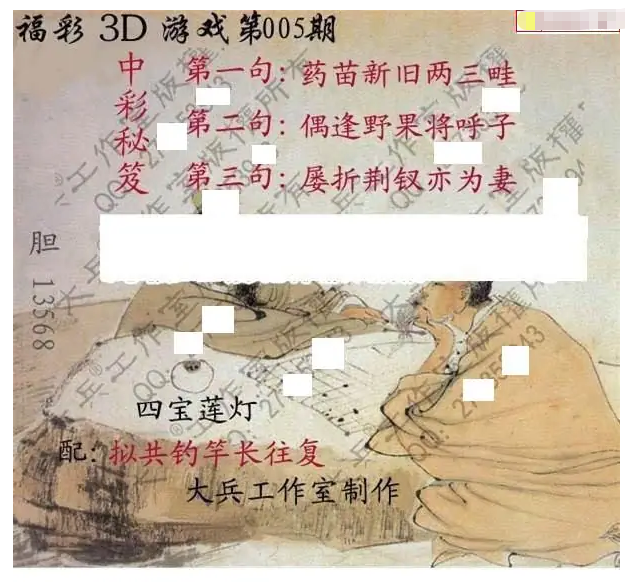 福彩 3D 游戏第005期
中彩秘笈
第一句：药苗新旧两三畦
第二句：偶逢野果将呼子
第三句：屡折荆钗亦为妻
胆 13568
四宝莲灯
配：拟共钓竿长往复
大兵工作室制作